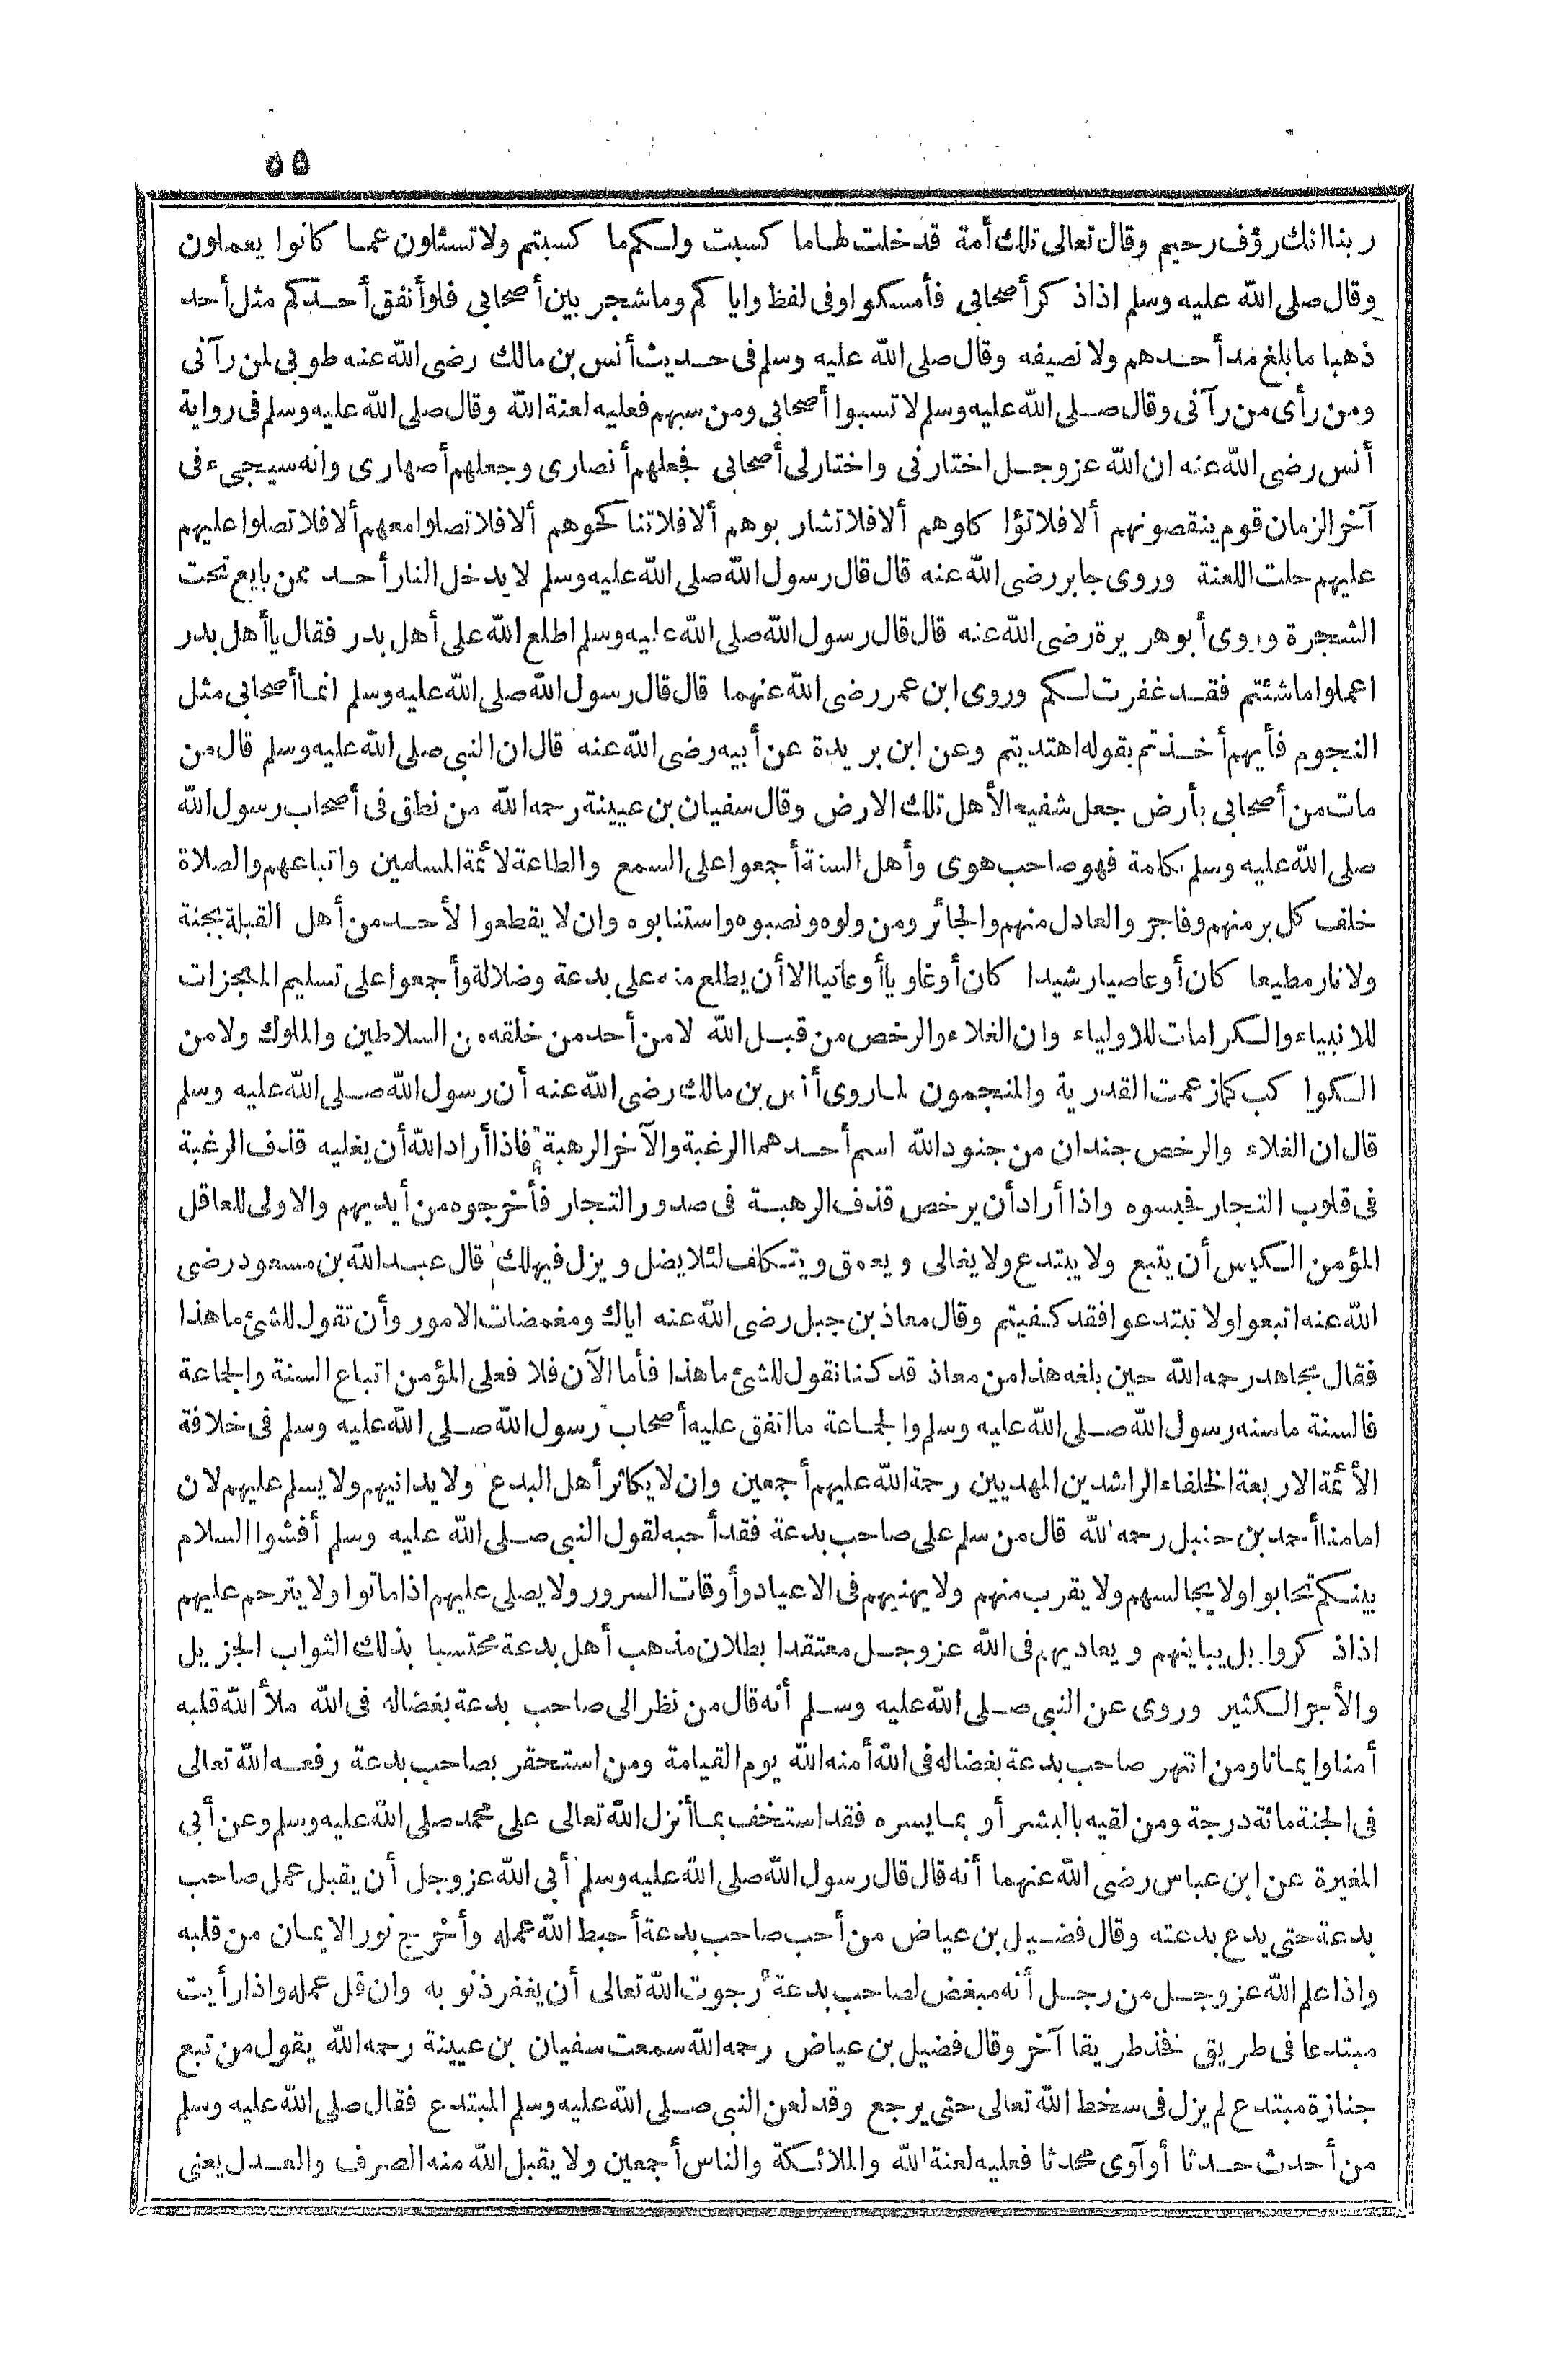 ٥٥
ربنا انك رؤف رحيم وقال تعالى تلك أمة قد خلت لها ما كسبت ولكم ما كسبتم ولا تسئلون عما كانوا يعملون
وقال صلى الله عليه وسلم اذا ذكر أصحابى فأمسكوا وفى لفظ وايا كم وما شجر بين أصحابى فلو أنفق أحدكم مثل أحد
ذهبا ما بلغ مد أحدهم ولا نصيفه وقال صلى الله عليه وسلم فى حديث أنس بن مالك رضى الله عنه طوبى لمن رآنى
ومن رأى من رآنى وقال صلى الله عليه وسلم لا تسبوا أصحابى ومن سبهم فعليه لعنة الله وقال صلى الله عليه وسلم فى رواية
أنس رضى الله عنه ان الله عز وجل اختارنى واختار لى أصحابى فجعلهم أنصارى وجعلهم أصهارى وانه سيجىء فى
آخر الزمان قوم ينقصونهم ألا فلا تؤاكلوهم ألا فلا تشاربوهم ألا فلا تناكحوهم ألا فلا تصلوا معهم ألا فلا تصلوا عليهم
عليهم حلت اللعنة وروى جابر رضى الله عنه قال قال رسول الله صلى الله عليه وسلم لا يدخل النار أحد ممن بايع تحت
الشجرة وروى أبو هريرة رضى الله عنه قال قال رسول الله صلى الله عليه وسلم اطلع الله على أهل بدر فقال يا أهل بدر
اعملوا ما شئتم فقد غفرت لكم وروى ابن عمر رضى الله عنهما قال قال رسول الله صلى الله عليه وسلم انما أصحابى مثل
النجوم فأيهم أخذتم بقوله اهتديتم وعن ابن بريدة عن أبيه رضى الله عنه قال ان النبى صلى الله عليه وسلم قال من
مات من أصحابى بأرض جعل شفيعا لأهل تلك الارض وقال سفيان بن عيينة رحمه الله من نطق فى أصحاب رسول الله
صلى الله عليه وسلم بكلمة فهو صاحب هوى وأهل السنة أجمعوا على السمع والطاعة لائمة المسلمين واتباعهم والصلاة
خلف كل بر منهم وفاجر والعادل منهم والجائر ومن ولوه ونصبوه واستنابوه وان لا يقطعوا لأحد من أهل القبلة بجنة
ولا نار مطيعا كان أو عاصيا رشيدا كان أو غاويا أو عاتيا الا أن يطلع منه على بدعة وضلالة وأجمعوا على تسليم المعجزات
للانبياء والكرامات للاولياء وان الغلاء والرخص من قبل الله لا من أحد من خلقه من السلاطين والملوك ولا من
الكواكب كما زعمت القدرية والمنجمون لما روى أنس بن مالك رضى الله عنه أن رسول الله صلى الله عليه وسلم
قال ان الغلاء والرخص جندان من جنود الله اسم أحدهما الرغبة والآخر الرهبة فاذا أراد الله أن يغليه قذف الرغبة
فى قلوب التجار فحبسوه واذا أراد أن يرخص قذف الرهبة فى صدور التجار فأخرجوه من أيديهم والاولى للعاقل
المؤمن الكيس أن يتبع ولا يبتدع ولا يغالى ويعمق ويتكلف لئلا يضل ويزل فيهلك قال عبد الله بن مسعود رضى
الله عنه اتبعوا ولا تبتدعوا فقد كفيتم وقال معاذ بن جبل رضى الله عنه اياك ومغمضات الامور وأن تقول للشئ ما هذا
فقال مجاهد رحمه الله حين بلغه هذا من معاذ قد كنا نقول للشئ ما هذا فأما الآن فلا فعلى المؤمن اتباع السنة والجماعة
فالسنة ما سنه رسول الله صلى الله عليه وسلم والجماعة ما اتفق عليه أصحاب رسول الله صلى الله عليه وسلم فى خلافة
الأئمة الاربعة الخلفاء الراشدين المهديين رحمة الله عليهم أجمعين وان لا يكاثر أهل البدع ولا يدانيهم ولا يسلم عليهم لان
امامنا أحمد بن حنبل رحمه الله قال من سلم على صاحب بدعة فقد أحبه لقول النبى صلى الله عليه وسلم أفشوا السلام
بينكم تحابوا ولا يجالسهم ولا يقرب منهم ولا يهنيهم فى الاعياد وأوقات السرور ولا يصلى عليهم اذا ماتوا ولا يترحم عليهم
اذا ذكروا بل يباينهم ويعاديهم فى الله عز وجل معتقدا بطلان مذهب أهل بدعة محتسبا بذلك الثواب الجزيل
والأجر الكثير وروى عن النبى صلى الله عليه وسلم أنه قال من نظر الى صاحب بدعة بغضا له فى الله ملأ الله قلبه
أمنا وايمانا ومن انتهر صاحب بدعة بغضا له فى الله أمنه الله يوم القيامة ومن استحقر بصاحب بدعة رفعه الله تعالى
فى الجنة مائة درجة ومن لقيه بالبشر أو بما يسره فقد استخف بما أنزل الله تعالى على محمد صلى الله عليه وسلم وعن أبى
المغيرة عن ابن عباس رضى الله عنهما أنه قال قال رسول الله صلى الله عليه وسلم أبى الله عز وجل أن يقبل عمل صاحب
بدعة حتى يدع بدعته وقال فضيل بن عياض من أحب صاحب بدعة أحبط الله عمله وأخرج نور الايمان من قلبه
واذا علم الله عز وجل من رجل أنه مبغض لصاحب بدعة رجوت الله تعالى أن يغفر ذنوبه وان قل عمله واذا رأيت
مبتدعا فى طريق فخذ طريقا آخر وقال فضيل بن عياض رحمه الله سمعت سفيان بن عيينة رحمه الله يقول من تبع
جنازة مبتدع لم يزل فى سخط الله تعالى حتى يرجع وقد لعن النبى صلى الله عليه وسلم المبتدع فقال صلى الله عليه وسلم
من أحدث حدثا أو آوى محدثا فعليه لعنة الله والملائكة والناس أجمعين ولا يقبل الله منه الصرف والعدل يعنى